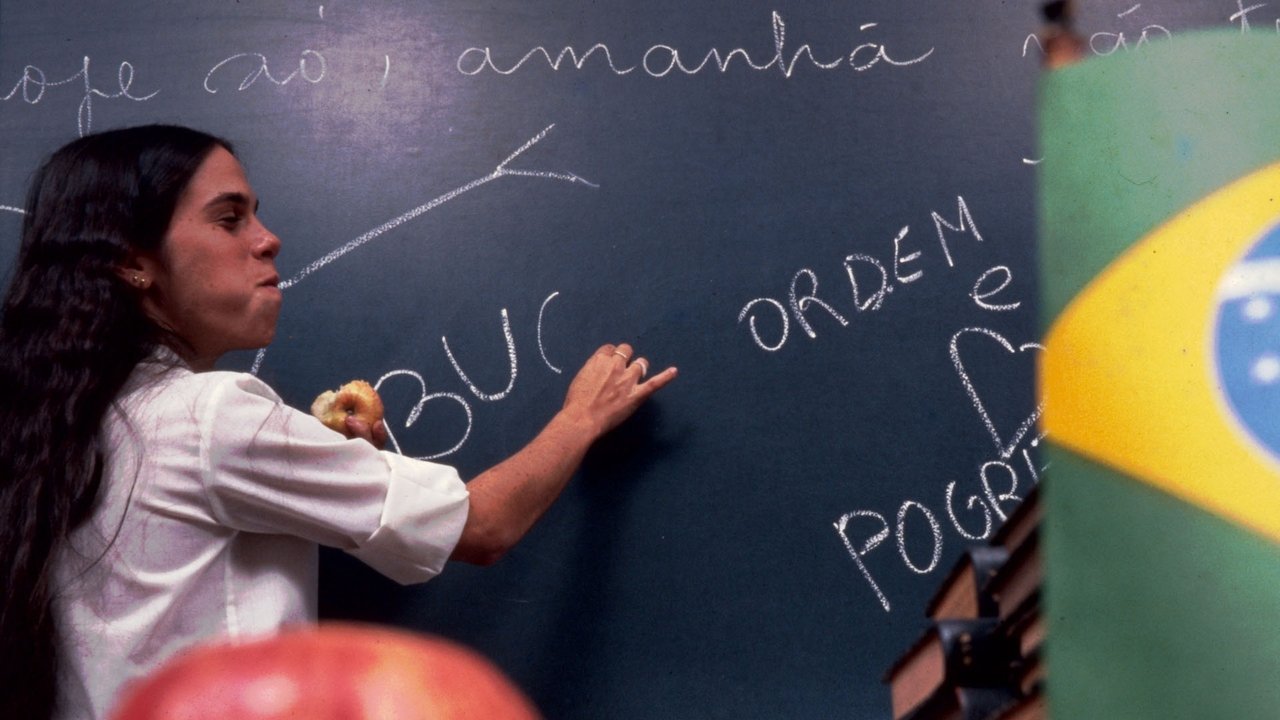 oje só, amanhã não t
BUC
ORDEM
e
POGR